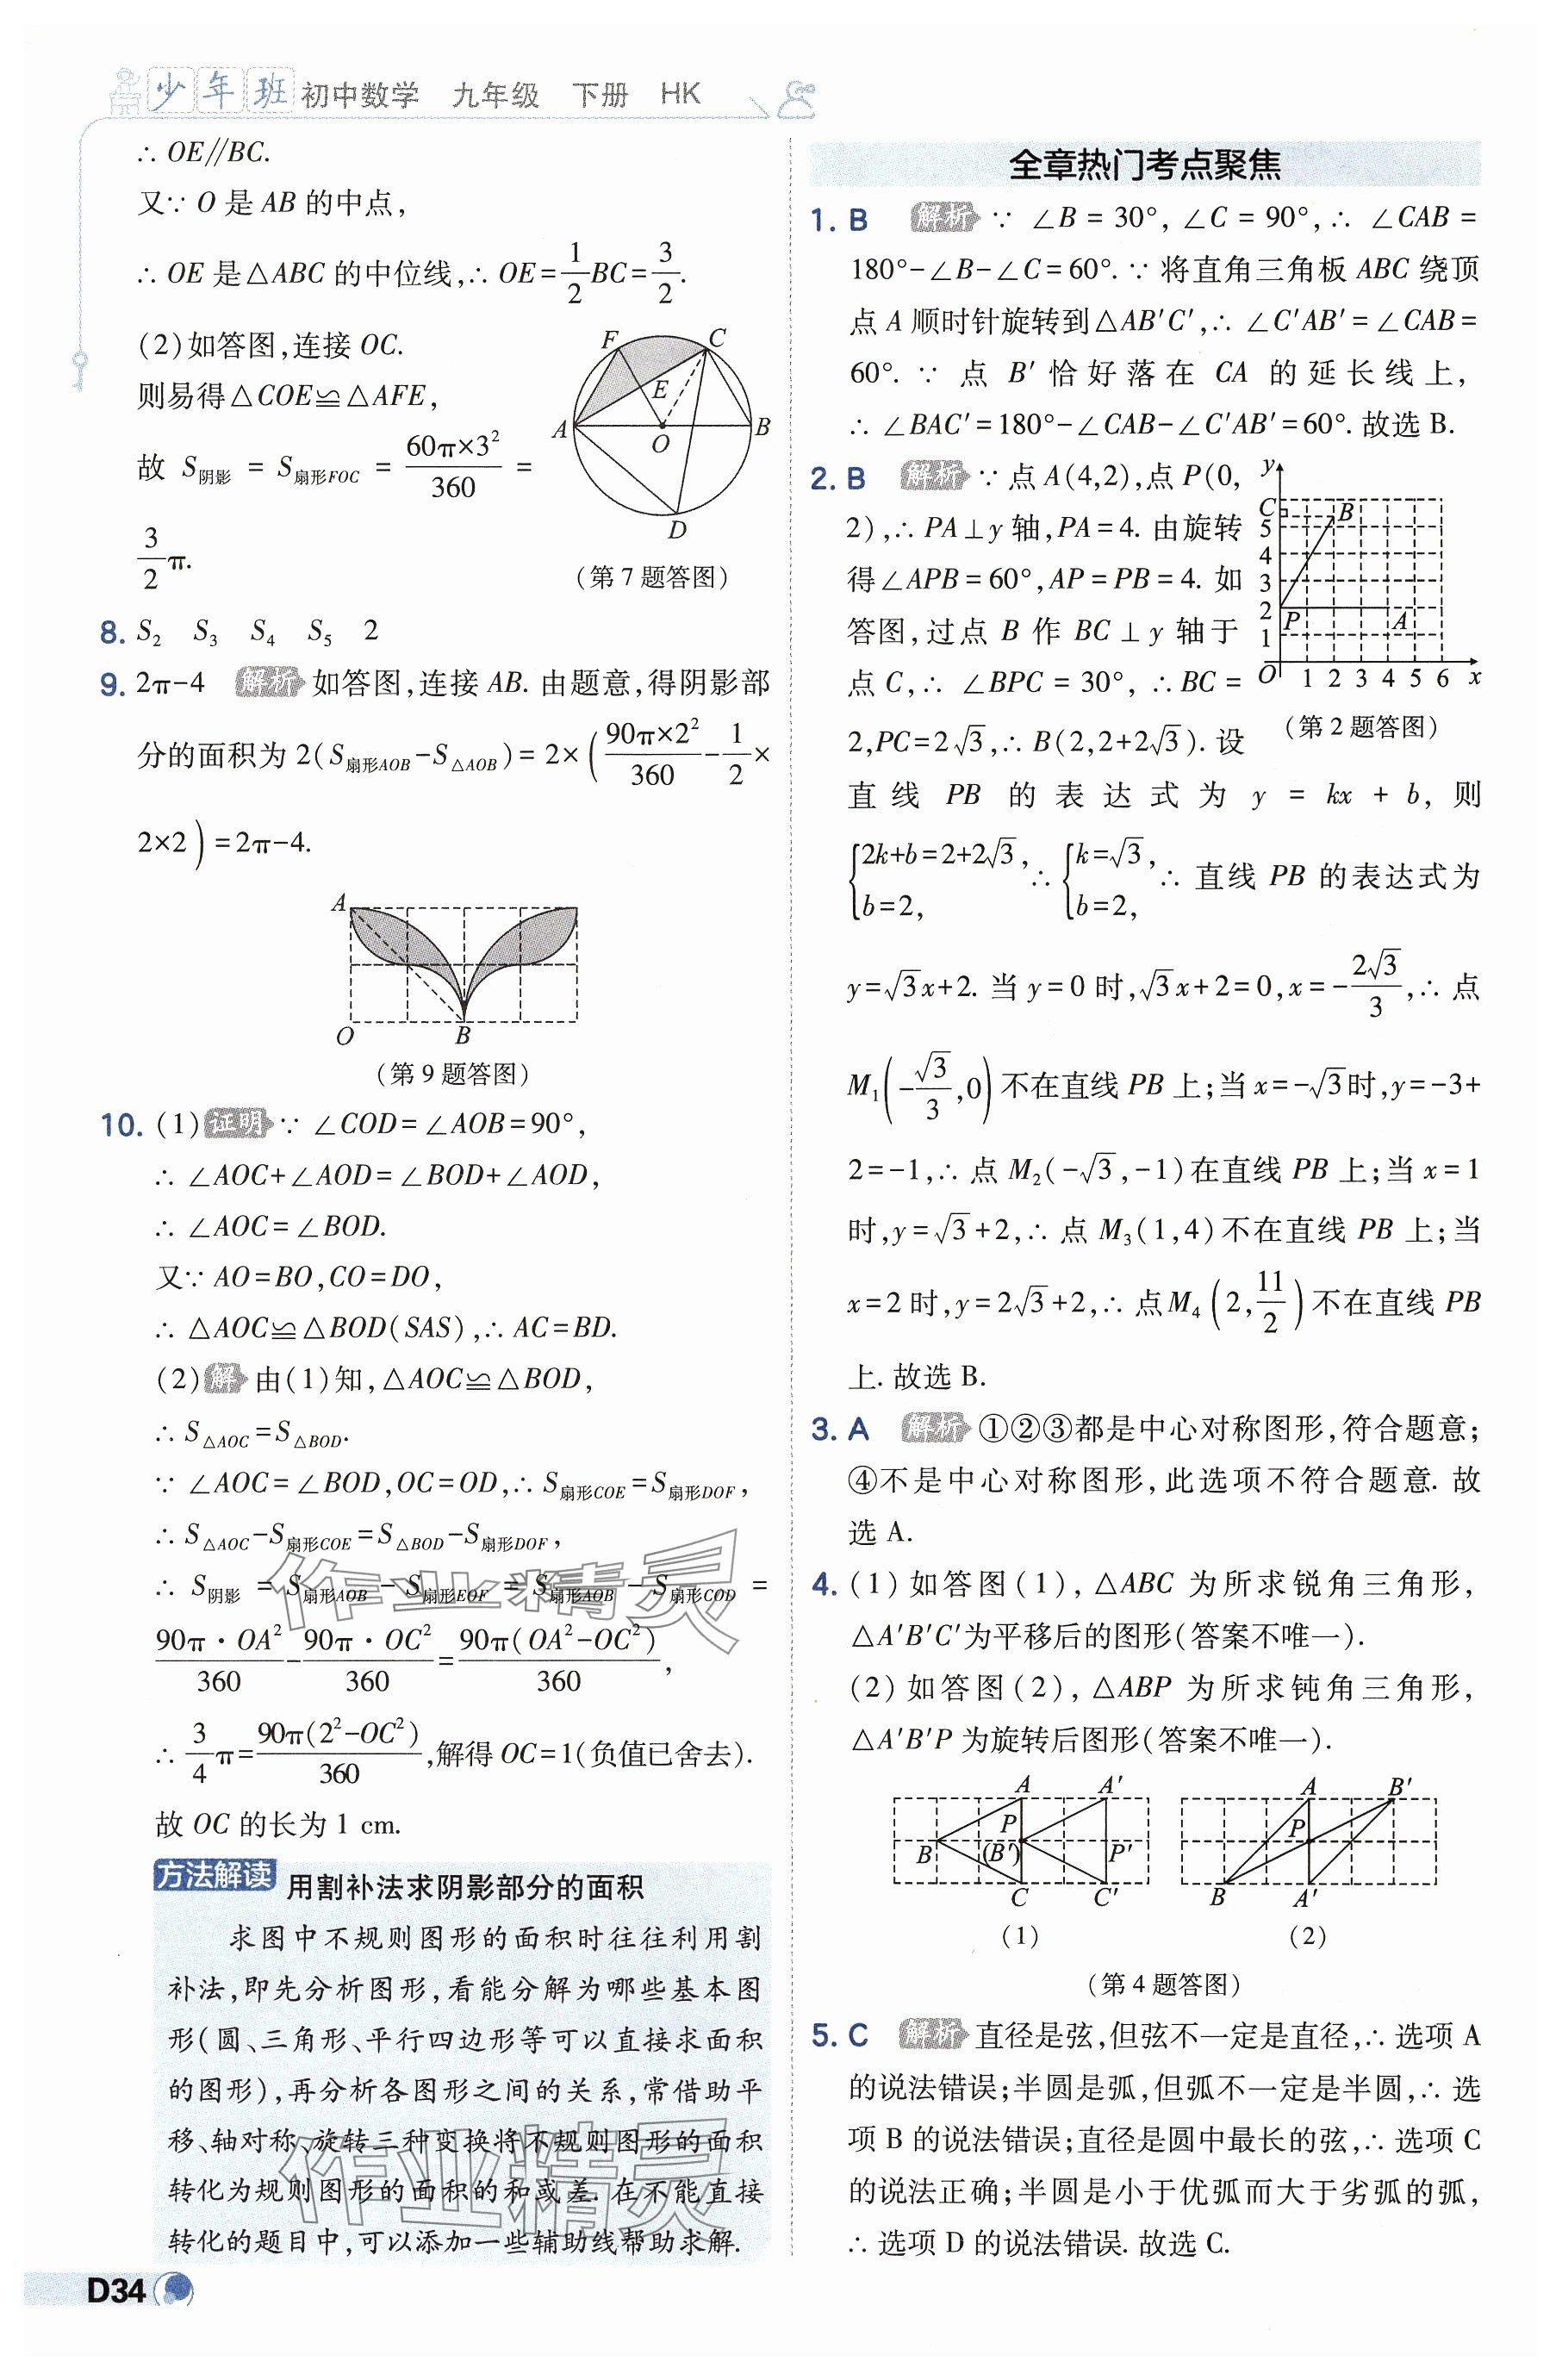 少年班 初中数学 九年级 下册 HK
∴ OE∥BC.
又∵ O 是 AB 的中点,
∴ OE 是△ABC 的中位线,∴ OE=1/2BC=3/2.
(2)如答图,连接 OC.
则易得△COE≌△AFE,
故 S阴影 = S扇形FOC = 60π×3²/360 =
3/2π.
F C E A O B D
(第 7 题答图)
8. S₂ S₃ S₄ S₅ 2
9. 2π-4 解析 如答图,连接 AB. 由题意,得阴影部
分的面积为 2(S扇形AOB-S△AOB)= 2×(90π×2²/360-1/2×
2×2)=2π-4.
A O B
(第 9 题答图)
10. (1)证明 ∵ ∠COD=∠AOB=90°,
∴ ∠AOC+∠AOD=∠BOD+∠AOD,
∴ ∠AOC=∠BOD.
又∵ AO=BO,CO=DO,
∴ △AOC≌△BOD(SAS),∴ AC=BD.
(2)解 由(1)知,△AOC≌△BOD,
∴ S△AOC=S△BOD.
∵ ∠AOC=∠BOD,OC=OD,∴ S扇形COE=S扇形DOF,
∴ S△AOC-S扇形COE=S△BOD-S扇形DOF,
∴ S阴影 = S扇形AOB - S扇形EOF = S扇形AOB - S扇形COD =
90π·OA²/360-90π·OC²/360=90π(OA²-OC²)/360,
∴ 3/4π=90π(2²-OC²)/360,解得 OC=1(负值已舍去).
故 OC 的长为 1 cm.
方法解读 用割补法求阴影部分的面积
求图中不规则图形的面积时往往利用割
补法,即先分析图形,看能分解为哪些基本图
形(圆、三角形、平行四边形等可以直接求面积
的图形),再分析各图形之间的关系,常借助平
移、轴对称、旋转三种变换将不规则图形的面积
转化为规则图形的面积的和或差. 在不能直接
转化的题目中,可以添加一些辅助线帮助求解.
D34
全章热门考点聚焦
1. B 解析 ∵ ∠B = 30°, ∠C = 90°,∴ ∠CAB =
180°-∠B-∠C=60°. ∵ 将直角三角板 ABC 绕顶
点 A 顺时针旋转到△AB′C′,∴ ∠C′AB′=∠CAB=
60°. ∵ 点 B′ 恰好落在 CA 的延长线上,
∴ ∠BAC′=180°-∠CAB-∠C′AB′=60°. 故选 B.
2. B 解析 ∵ 点 A(4,2),点 P(0,
2),∴ PA⊥y 轴,PA=4. 由旋转
得∠APB=60°,AP=PB=4. 如
答图,过点 B 作 BC⊥y 轴于
点 C,∴ ∠BPC = 30°, ∴ BC =
2,PC=2√3,∴ B(2,2+2√3). 设
y C B 5 4 3 2 1 P A O 1 2 3 4 5 6 x
(第 2 题答图)
直线 PB 的表达式为 y = kx + b, 则
{2k+b=2+2√3, b=2, ∴ {k=√3, b=2, ∴ 直线 PB 的表达式为
y=√3x+2. 当 y=0 时,√3x+2=0,x=-2√3/3,∴ 点
M₁(-√3/3,0)不在直线 PB 上;当 x=-√3时,y=-3+
2=-1,∴ 点 M₂(-√3,-1)在直线 PB 上;当 x=1
时,y=√3+2,∴ 点 M₃(1,4)不在直线 PB 上;当
x=2 时,y=2√3+2,∴ 点M₄(2,11/2)不在直线 PB
上. 故选 B.
3. A 解析 ①②③都是中心对称图形,符合题意;
④不是中心对称图形,此选项不符合题意. 故
选 A.
4. (1) 如答图(1), △ABC 为所求锐角三角形,
△A′B′C′为平移后的图形(答案不唯一).
(2) 如答图(2), △ABP 为所求钝角三角形,
△A′B′P 为旋转后图形(答案不唯一).
A A′ P B (B′) P′ C C′
A B′ P B A′
(1) (2)
(第 4 题答图)
5. C 解析 直径是弦,但弦不一定是直径,∴ 选项 A
的说法错误;半圆是弧,但弧不一定是半圆,∴ 选
项 B 的说法错误;直径是圆中最长的弦,∴ 选项 C
的说法正确;半圆是小于优弧而大于劣弧的弧,
∴ 选项 D 的说法错误. 故选 C.
作业精灵
作业精灵